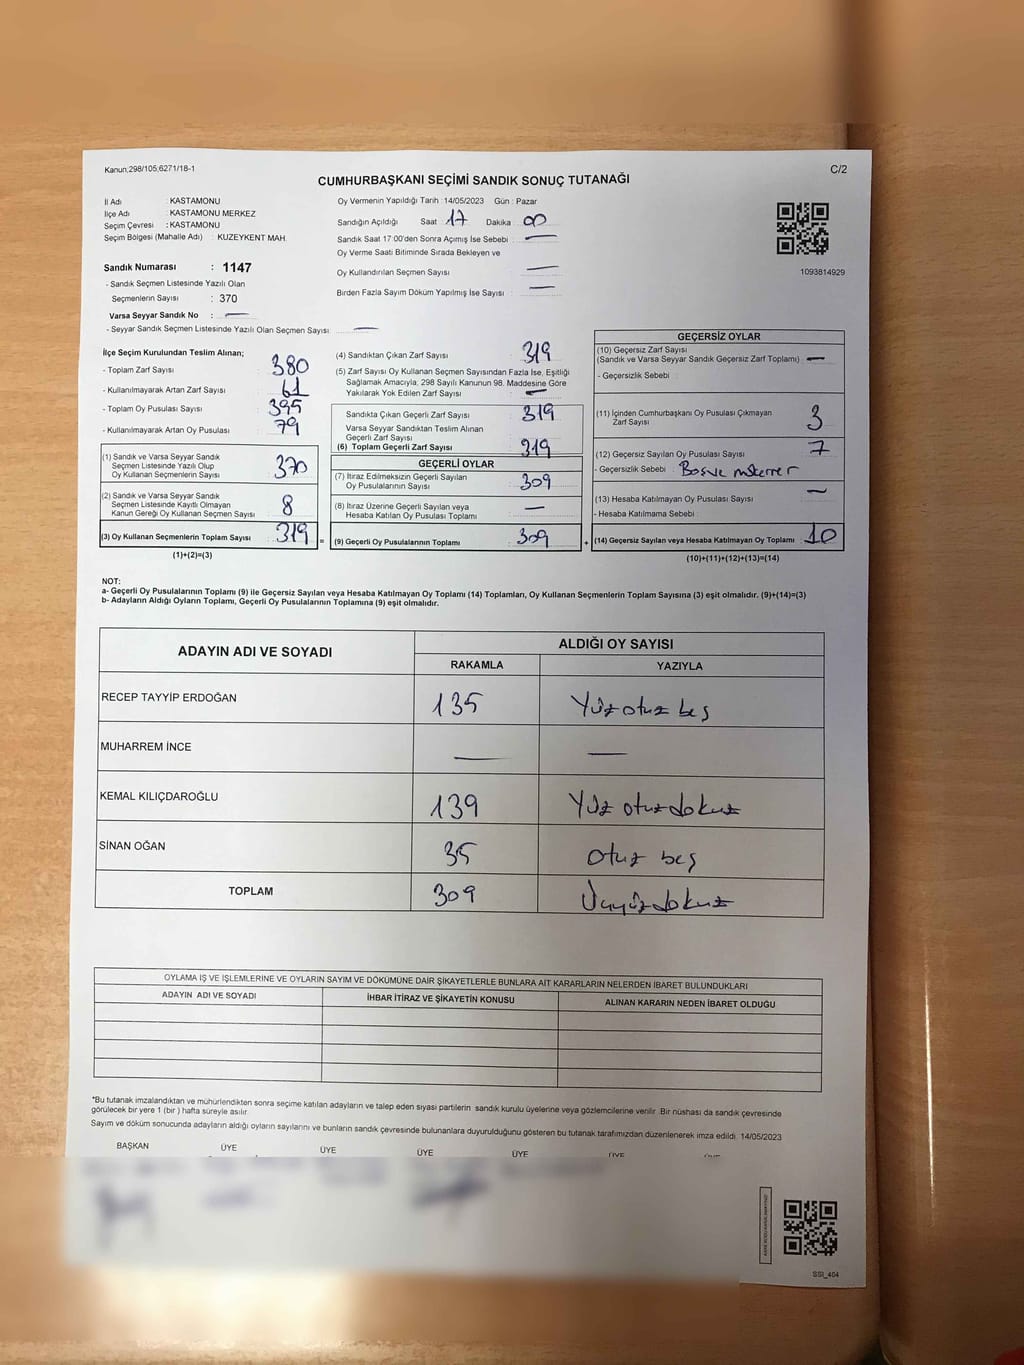 Kanun;298/105;6271/18-1
C/2
CUMHURBAŞKANI SEÇİMİ SANDIK SONUÇ TUTANAĞI
İl Adı : KASTAMONU
İlçe Adı : KASTAMONU MERKEZ
Seçim Çevresi : KASTAMONU
Seçim Bölgesi (Mahalle Adı) : KUZEYKENT MAH.
Sandık Numarası : 1147
- Sandık Seçmen Listesinde Yazılı Olan
Seçmenlerin Sayısı : 370
Varsa Seyyar Sandık No : —
- Seyyar Sandık Seçmen Listesinde Yazılı Olan Seçmen Sayısı: —
Oy Vermenin Yapıldığı Tarih : 14/05/2023 Gün : Pazar
Sandığın Açıldığı Saat : 17 Dakika : 00
Sandık Saat 17:00'den Sonra Açımış İse Sebebi : —
Oy Verme Saati Bitiminde Sırada Bekleyen ve
Oy Kullandırılan Seçmen Sayısı : —
Birden Fazla Sayım Döküm Yapılmış İse Sayısı : —
1093814929
İlçe Seçim Kurulundan Teslim Alınan;
- Toplam Zarf Sayısı : 380
- Kullanılmayarak Artan Zarf Sayısı : 61
- Toplam Oy Pusulası Sayısı : 395
- Kullanılmayarak Artan Oy Pusulası : 79
(1) Sandık ve Varsa Seyyar Sandık
Seçmen Listesinde Yazılı Olup
Oy Kullanan Seçmenlerin Sayısı : 370
(2) Sandık ve Varsa Seyyar Sandık
Seçmen Listesinde Kayıtlı Olmayan
Kanun Gereği Oy Kullanan Seçmen Sayısı : 8
(3) Oy Kullanan Seçmenlerin Toplam Sayısı : 319 =
(1)+(2)=(3)
(4) Sandıktan Çıkan Zarf Sayısı : 319
(5) Zarf Sayısı Oy Kullanan Seçmen Sayısından Fazla İse, Eşitliği
Sağlamak Amacıyla; 298 Sayılı Kanunun 98. Maddesine Göre
Yakılarak Yok Edilen Zarf Sayısı : —
Sandıkta Çıkan Geçerli Zarf Sayısı : 319
Varsa Seyyar Sandıktan Teslim Alınan
Geçerli Zarf Sayısı :
(6) Toplam Geçerli Zarf Sayısı : 319
GEÇERLİ OYLAR
(7) İtiraz Edilmeksizin Geçerli Sayılan
Oy Pusulalarının Sayısı : 309
(8) İtiraz Üzerine Geçerli Sayılan veya
Hesaba Katılan Oy Pusulası Toplamı : —
(9) Geçerli Oy Pusulalarının Toplamı : 309 +
GEÇERSİZ OYLAR
(10) Geçersiz Zarf Sayısı
(Sandık ve Varsa Seyyar Sandık Geçersiz Zarf Toplamı) : —
- Geçersizlik Sebebi :
(11) İçinden Cumhurbaşkanı Oy Pusulası Çıkmayan
Zarf Sayısı : 3
(12) Geçersiz Sayılan Oy Pusulası Sayısı : 7
- Geçersizlik Sebebi :
(13) Hesaba Katılmayan Oy Pusulası Sayısı : —
- Hesaba Katılmama Sebebi :
(14) Geçersiz Sayılan veya Hesaba Katılmayan Oy Toplamı : 10
(10)+(11)+(12)+(13)=(14)
NOT:
a- Geçerli Oy Pusulalarının Toplamı (9) ile Geçersiz Sayılan veya Hesaba Katılmayan Oy Toplamı (14) Toplamları, Oy Kullanan Seçmenlerin Toplam Sayısına (3) eşit olmalıdır. (9)+(14)=(3)
b- Adayların Aldığı Oyların Toplamı, Geçerli Oy Pusulalarının Toplamına (9) eşit olmalıdır.
ADAYIN ADI VE SOYADI
ALDIĞI OY SAYISI
RAKAMLA YAZIYLA
RECEP TAYYİP ERDOĞAN 135 Yüz otuz beş
MUHARREM İNCE — —
KEMAL KILIÇDAROĞLU 139 Yüz otuz dokuz
SİNAN OĞAN 35 otuz beş
TOPLAM 309 Üçyüz dokuz
OYLAMA İŞ VE İŞLEMLERİNE VE OYLARIN SAYIM VE DÖKÜMÜNE DAİR ŞİKAYETLERLE BUNLARA AİT KARARLARIN NELERDEN İBARET BULUNDUKLARI
ADAYIN ADI VE SOYADI İHBAR İTİRAZ VE ŞİKAYETİN KONUSU ALINAN KARARIN NEDEN İBARET OLDUĞU
*Bu tutanak imzalandıktan ve mühürlendikten sonra seçime katılan adayların ve talep eden siyasi partilerin sandık kurulu üyelerine veya gözlemcilerine verilir. Bir nüshası da sandık çevresinde
görülecek bir yere 1 (bir ) hafta süreyle asılır.
Sayım ve döküm sonucunda adayların aldığı oyların sayılarını ve bunların sandık çevresinde bulunanlara duyurulduğunu gösteren bu tutanak tarafımızdan düzenlenerek imza edildi. 14/05/2023
BAŞKAN ÜYE ÜYE ÜYE ÜYE ÜYE
SSI_404